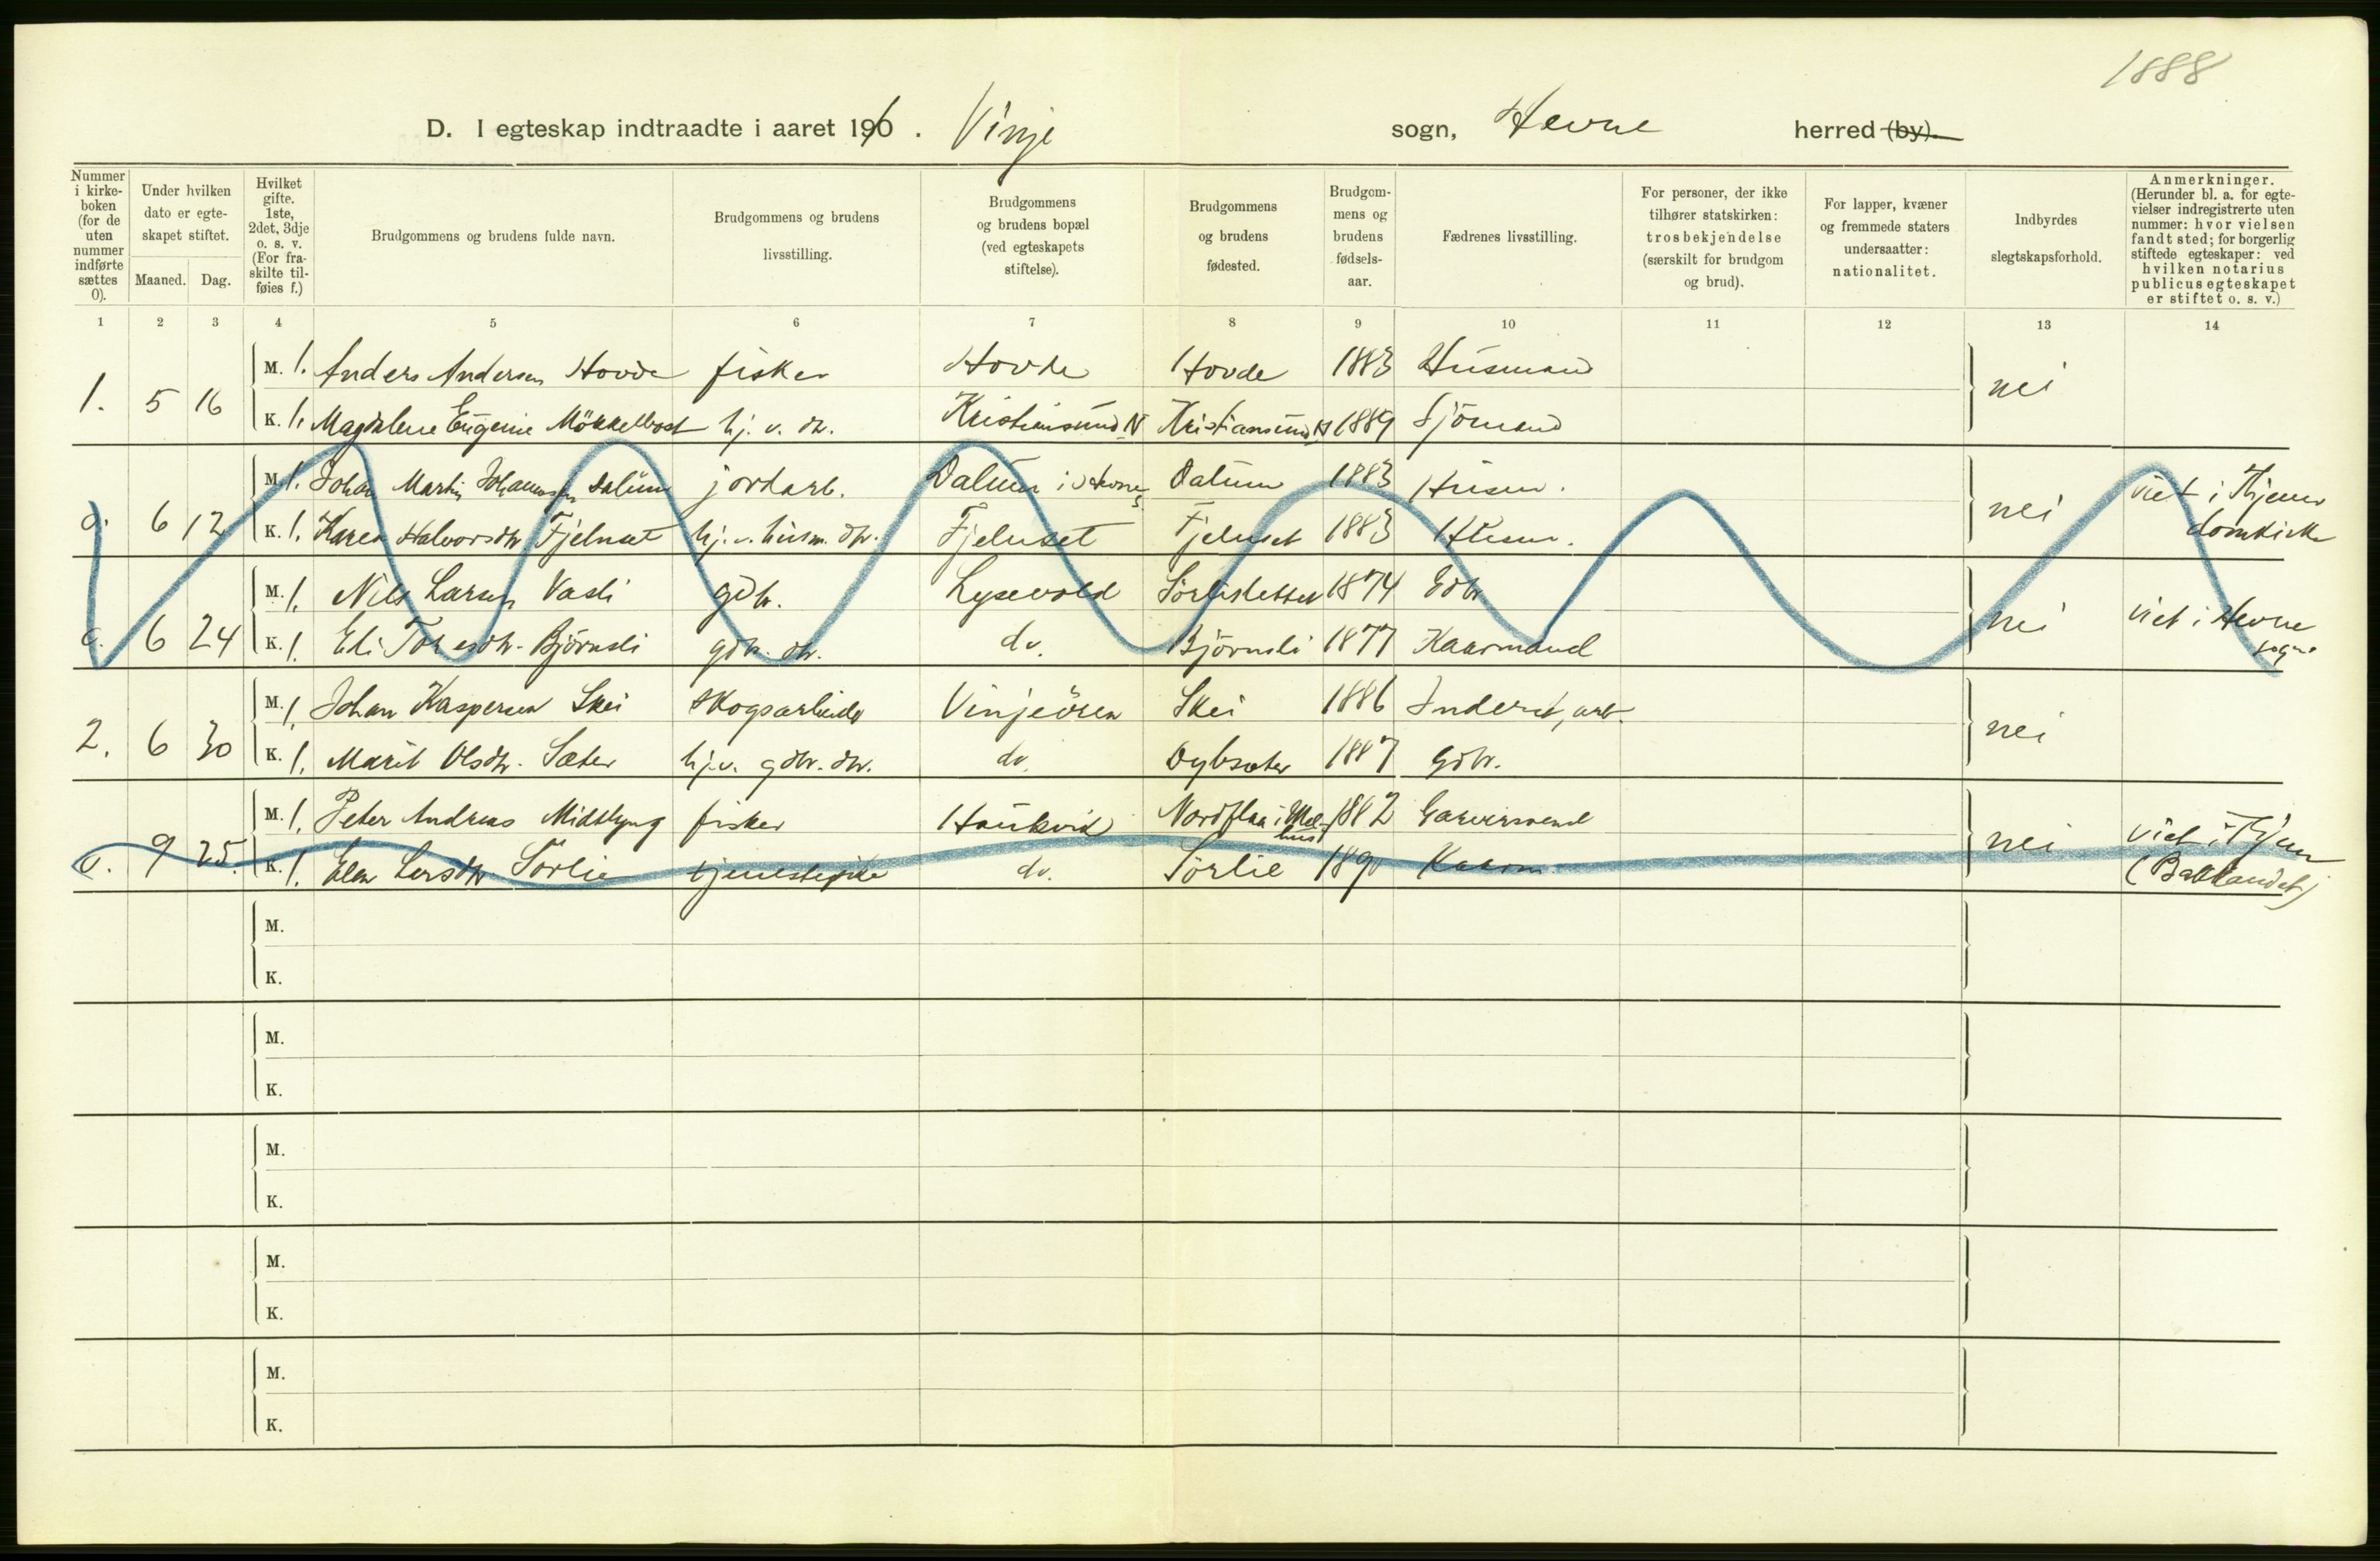 1888
D. I egteskap indtraadte i aaret 190 . Vinje sogn, Hevne herred (by).
Nummer i kirkeboken (for de uten nummer indførte sættes 0).
Under hvilken dato er egteskapet stiftet.
Maaned. Dag.
Hvilket gifte. 1ste, 2det, 3dje o. s. v. (For fraskilte tilføies f.)
Brudgommens og brudens fulde navn.
Brudgommens og brudens livsstilling.
Brudgommens og brudens bopæl (ved egteskapets stiftelse).
Brudgommens og brudens fødested.
Brudgommens og brudens fødselsaar.
Fædrenes livsstilling.
For personer, der ikke tilhører statskirken: trosbekjendelse (særskilt for brudgom og brud).
For lapper, kvæner og fremmede staters undersaatter: nationalitet.
Indbyrdes slegtskapsforhold.
Anmerkninger. (Herunder bl. a. for egtevielser indregistrerte uten nummer: hvor vielsen fandt sted; for borgerlig stiftede egteskaper: ved hvilken notarius publicus egteskapet er stiftet o. s. v.)
1 2 3 4 5 6 7 8 9 10 11 12 13 14
1. 5 16 M. 1. Anders Andersen Hovde fisker Hovde Hovde 1883 Husmand nei
K. 1. Magdalene Eugenie Mökkelbost hj. v. dr. Kristiansund N Kristiansund N 1889 Sjömand
0. 6 12 M. 1. Johan Martin Johannessen Dalum jordarb. Dalum i Dalum 1883 Husm. nei viet i Thjems
K. 1. Karen Halvorsdtr Fjelnset hj. v. husm. dtr. Fjelnset Fjelnset 1883 Husm. domkirke
0. 6 24 M. 1. Nils Larsen Vasli gdbr. Lysevold Sörlisletten 1874 Gdbr nei viet i Hevne
K. 1. Eli Toresdtr. Björnsli gdbr. dtr. do. Björnsli 1877 Kaarmand sogn
2. 6 30 M. 1. Johan Kaspersen Skei skogsarbeider Vinjeören Skei 1886 Inderst, arb. nei
K. 1. Marit Olsdtr. Sæter hj.v. gdbr. dtr. do. Dybsæter 1887 Gdbr.
0. 9 25. M. 1. Peter Andreas Midtlyng fisker Haukvik Nordflaa i Melhus 1882 Garversvend nei viet i Thjem
K. 1. Elen Larsdtr Sörlie tjenestepike do. Sörlie 1890 Kaarm. (Baklandet)
M.
K.
M.
K.
M.
K.
M.
K.
M.
K.